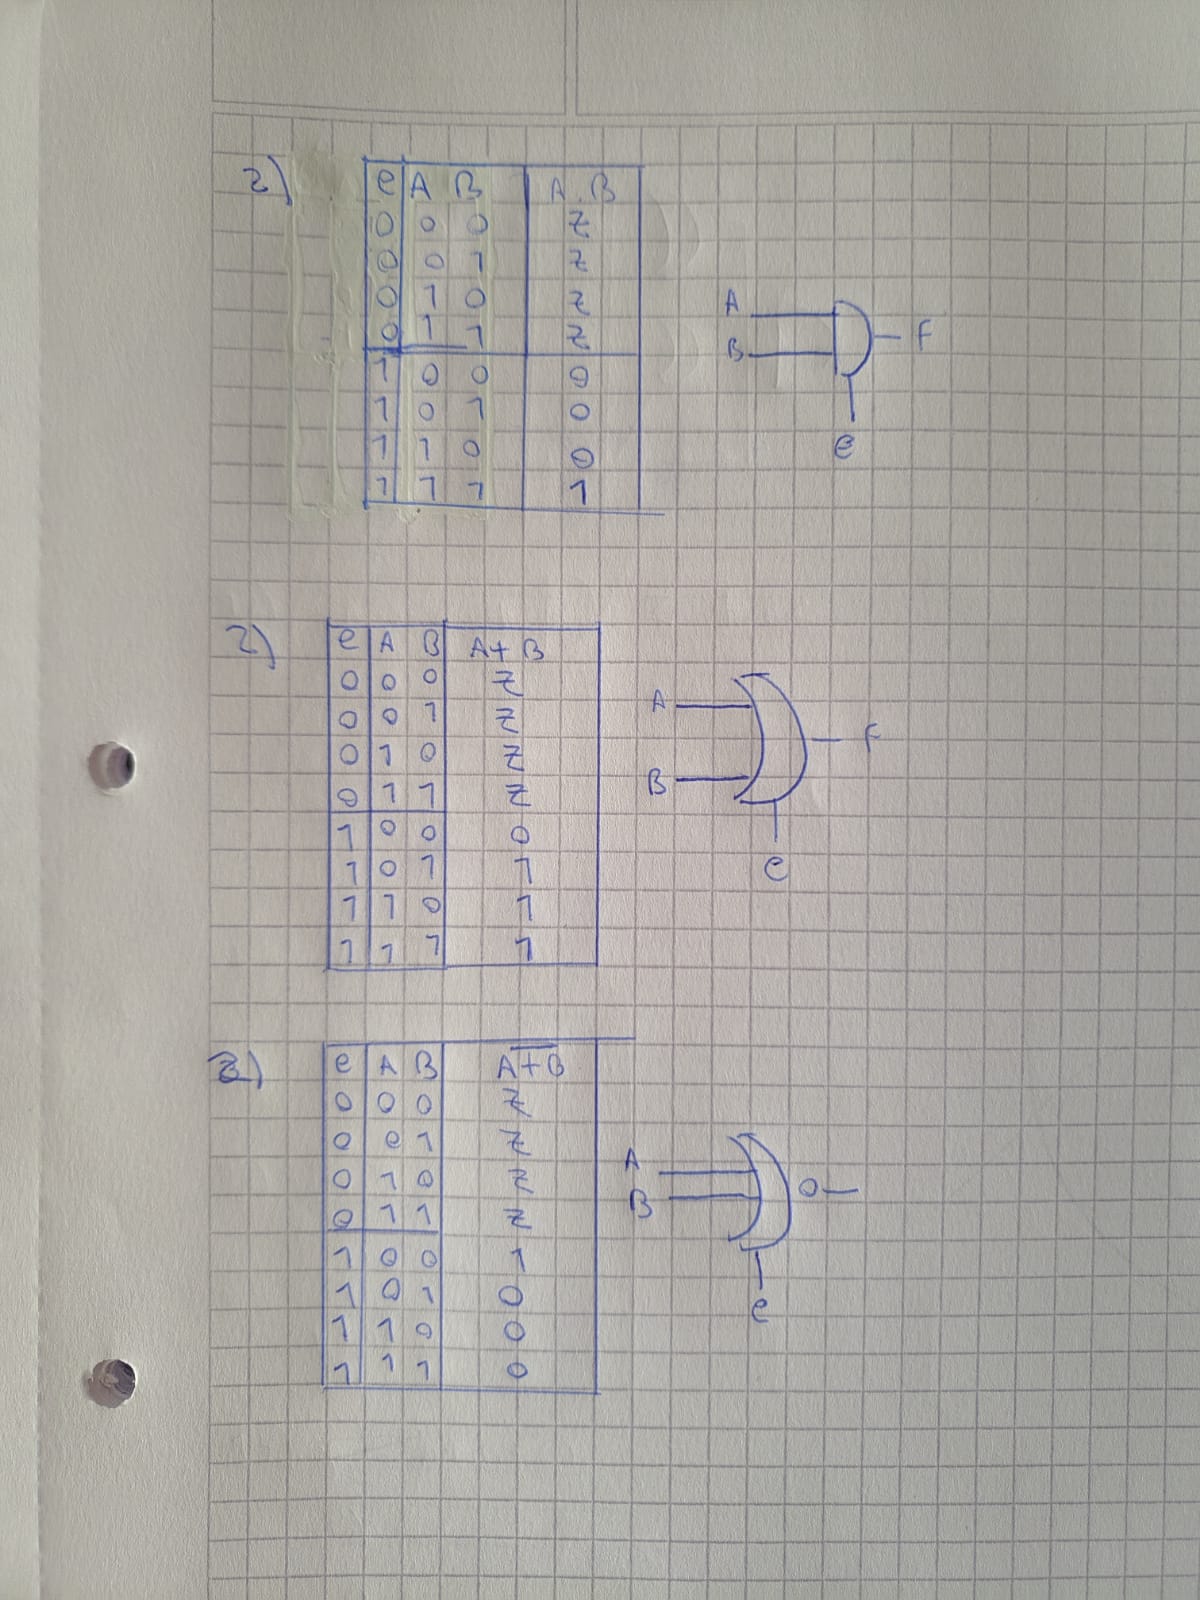 2)
e A B A.B
0 0 0 Z
0 0 1 Z
0 1 0 Z
0 1 1 Z
1 0 0 0
1 0 1 0
1 1 0 0
1 1 1 1
A
B
F
e
2)
e A B A+B
0 0 0 Z
0 0 1 Z
0 1 0 Z
0 1 1 Z
1 0 0 0
1 0 1 1
1 1 0 1
1 1 1 1
A
B
F
e
3)
e A B A̅+̅B̅
0 0 0 Z
0 0 1 Z
0 1 0 Z
0 1 1 Z
1 0 0 1
1 0 1 0
1 1 0 0
1 1 1 0
A
B
e